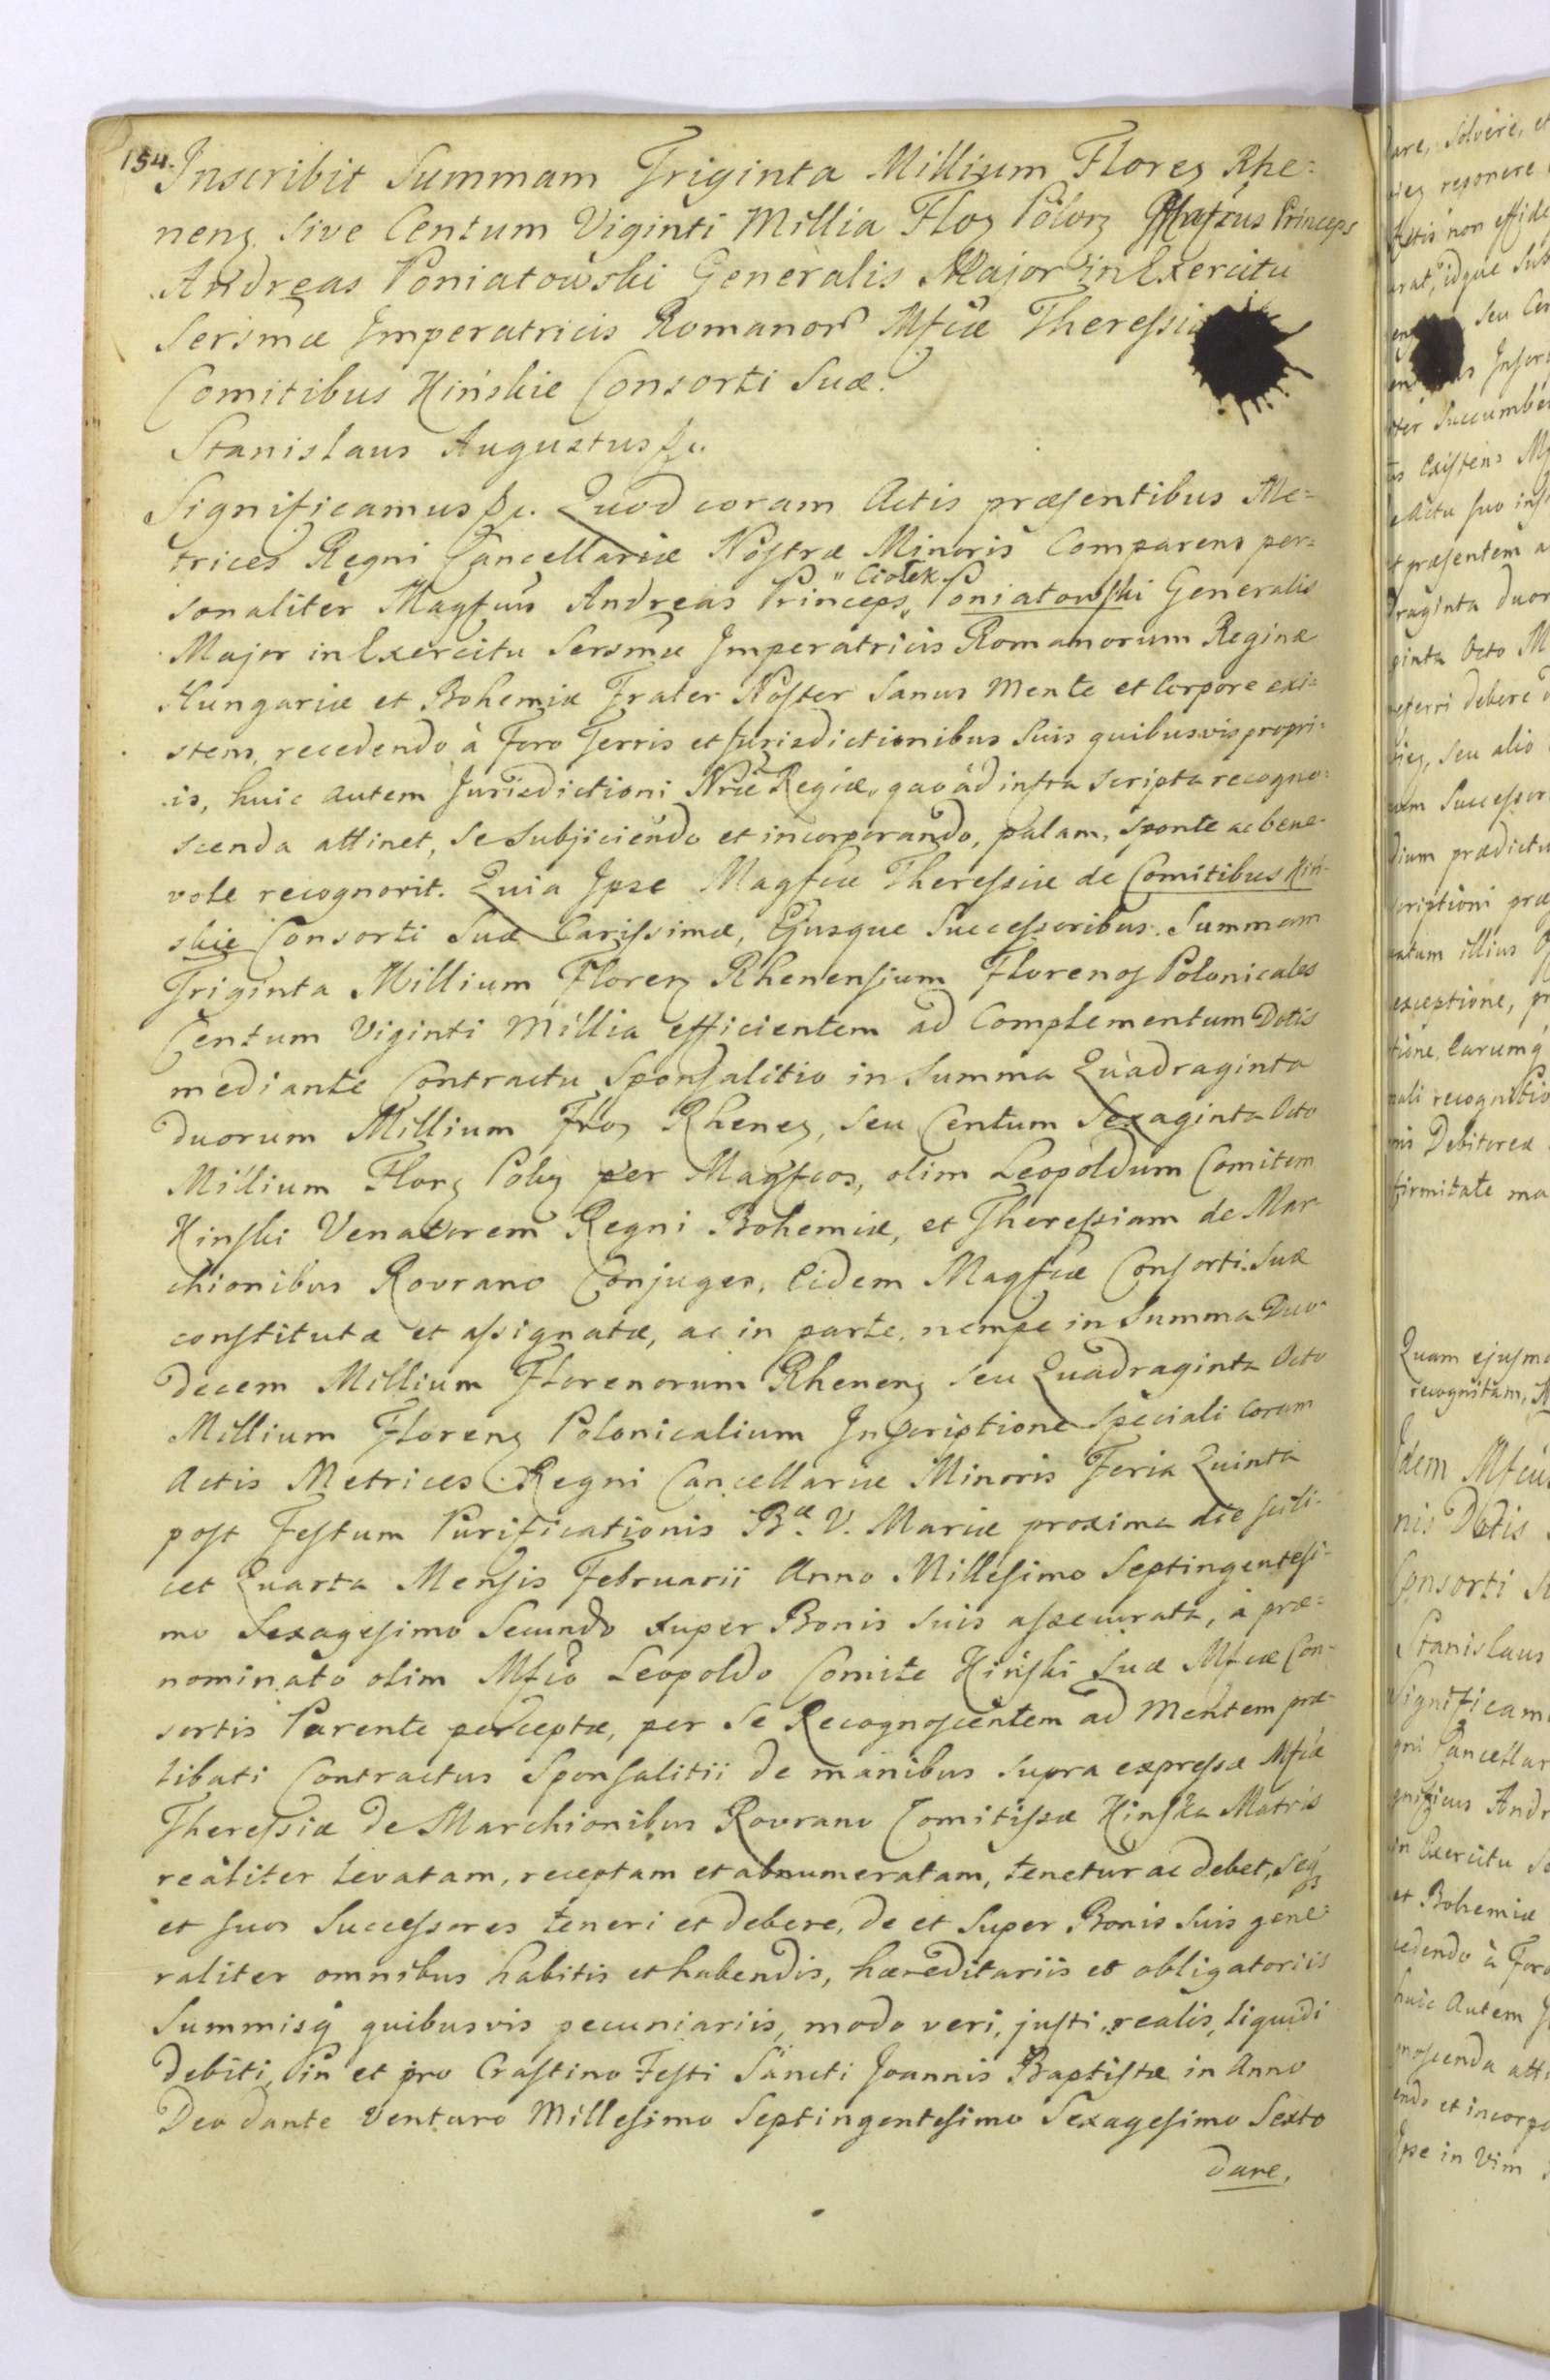 154.
Inscribit Summam Triginta Millium Florez Rhe=
nenz sive Centum Viginti Millia Floz Polorz Princeps
Andreas Poniatowski Generalis Major in Exercitu
Sersmæ Imperatricis Romanor Mfcæ Theressiæ
Comitibus Kińskie Consorti Suæ.
Stanislaus Augustus &c.
Significamus &c. Quod coram Actis præsentibus Me=
trices Regni Cancellariæ Nostræ Minoris Comparens per=
sonaliter Magfcus Andreas Princeps "Ciołek Poniatowski Generalis
Major in Exercitu Sersmæ Imperatricis Romanorum Reginæ
Hungariæ et Bohemiæ Frater Noster Sanus Mente et Corpore exi=
stens, recedendo à Foro Terris et Jurisdictionibus Suis quibusvis propri=
is, huic autem Jurisdictioni Nræ Regiæ, quo ad infra scripta recogno=
scenda attinet, se Subjiciendo et incorporando, palam, sponte ac bene-
vole recognovit. Quia Ipse Magfcæ Theressiæ de Comitibus Kiń-
skie Consorti Suæ Carissimæ, Ejusque Successoribus Summam
Triginta Millium Florenz Rhenensium Florenos Polonicales
Centum Viginti Millia efficientem ad Complementum Dotis
mediante Contractu Sponsalitio in Summa Quadraginta
duorum Millium Floz Rhenez, seu Centum Sexaginta Octo
Millium Florz Polz per Magfcos, olim Leopoldum Comitem
Kinski Venatorem Regni Bohemiæ, et Theressiam de Mar
chionibus Rovrano Conjuges, Eidem Magfcæ Consorti Suæ
constitutæ et assignatæ, ac in parte, nempe in Summa Duo-
decem Millium Florenorum Rhenenz seu Quadraginta Octo
Millium Florenz Polonicalium Inscriptione speciali coram
Actis Metrices Regni Cancellariæ Minoris Feria Quinta
post Festum Purificationis Bæ. V. Mariæ proxima die scili-
cet Quarta Mensis Februarii Anno Millesimo Septingentesi-
mo Sexagesimo Secundo super Bonis suis assecurata, à præ=
nominato olim Mfco Leopoldo Comite Kiński Suæ Mfcæ Con-
sortis Parente perceptæ, per se Recognoscentem ad Mentem præ-
libati Contractus Sponsalitii de manibus supra expressæ Mfcæ
Theressiæ de Marchionibus Rovrano Comitissæ Kinska Matris
realiter levatam, receptam et abnumeratam, tenetur ac debet, seq
et suos Successores teneri et debere, de et super Bonis suis gene=
raliter omnibus habitis et habendis, hæreditariis et obligatoriis
Summisq quibusvis pecuniariis, modo veri, justi, realis, liquidi
debiti, in et pro Crastino Festi Sancti Joannis Baptistæ in Anno
Deo dante venturo Millesimo Septingentesimo Sexagesimo Sexto
dare,